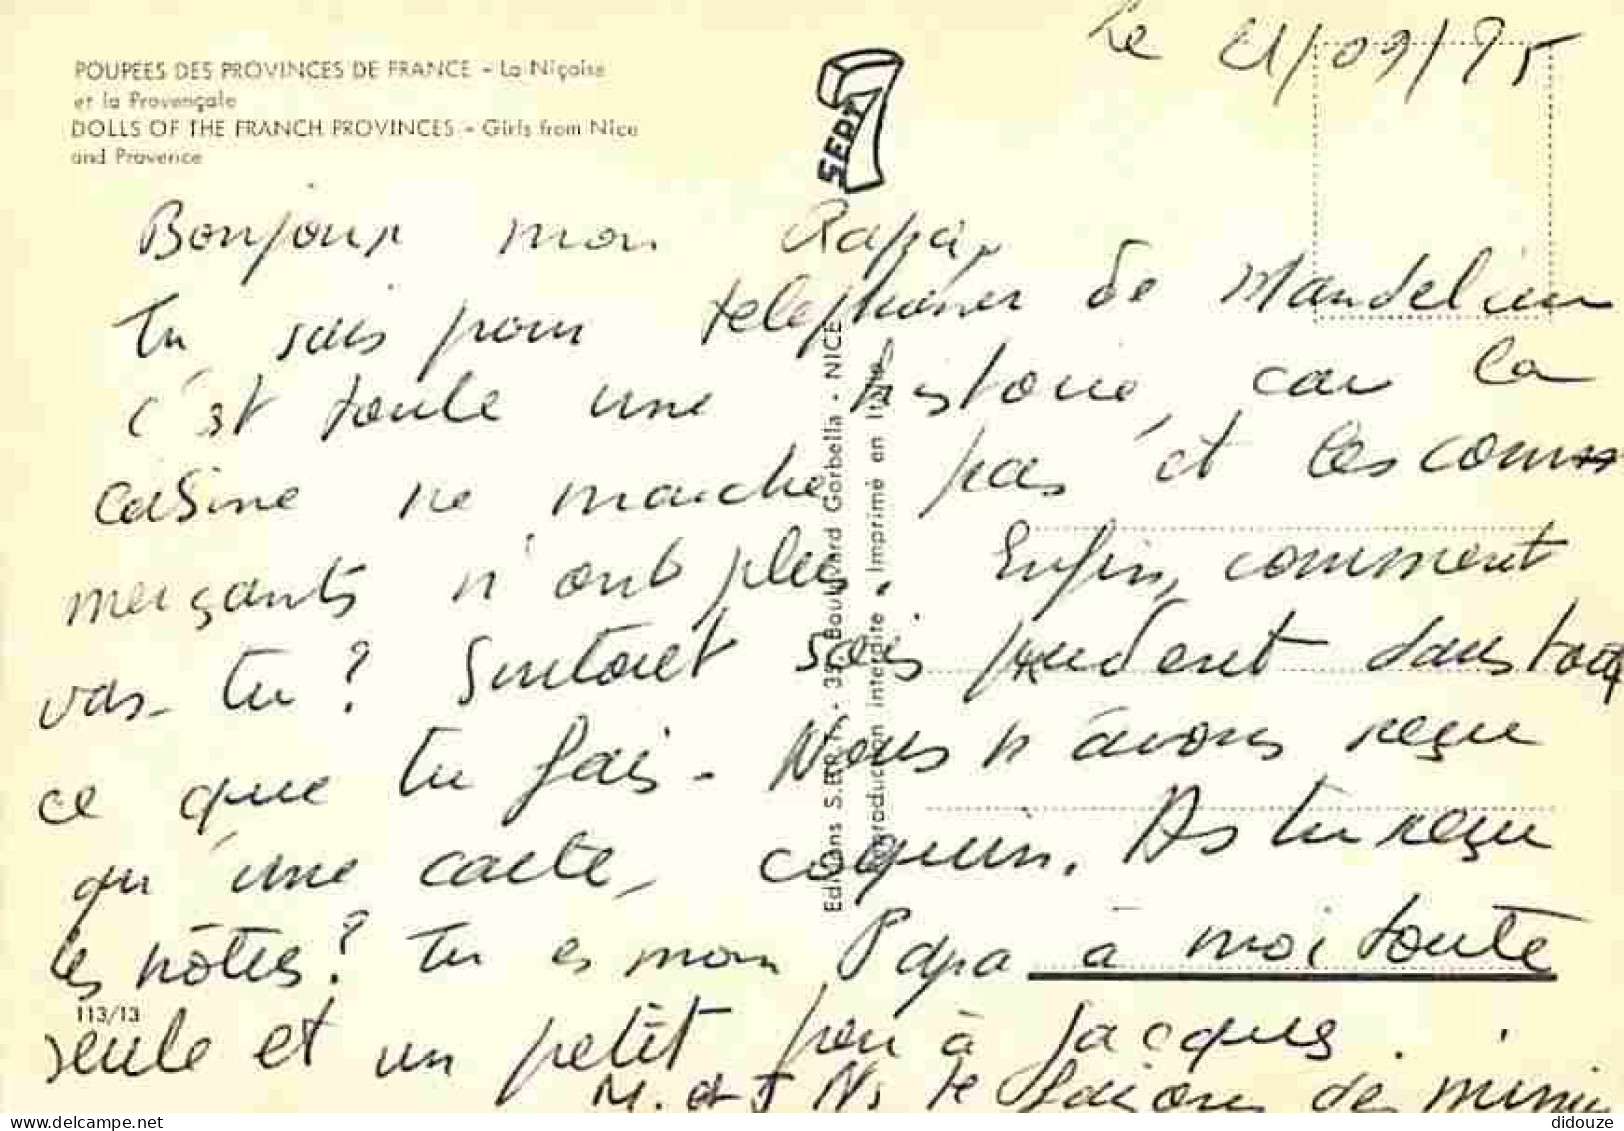 Le 21/09/95
POUPEES DES PROVINCES DE FRANCE - La Niçoise
et la Provençale
DOLLS OF THE FRANCH PROVINCES - Girls from Nice
and Provence
7 SEPT
Bonjour mon Papa,
Tu sais pour telephoner de Mandelieu
c'est toute une histoire, car la
cabine ne marche pas et les comm
merçants n'ont plus. Enfin, comment
vas-tu? Surtout sois prudent dans tout
ce que tu fais - Nous n'avons reçu
qu'une carte, coquin. As tu reçu
les nôtres? Tu es mon Papa à moi toute
seule et un petit peu à Jacques.
M. et J Ns te faisons de
113/13
Editions S.E.P.T. - 35, Boulevard Gorbella - NICE
Reproduction interdite. Imprimé en Italie
didouze